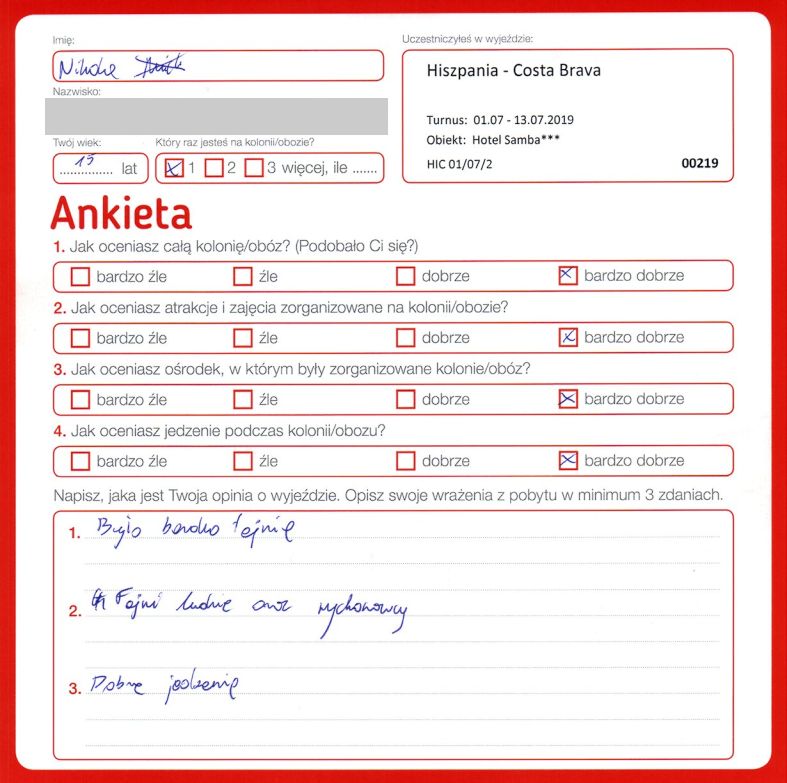 Imię:
Uczestniczyłeś w wyjeździe:
Nikola
Hiszpania - Costa Brava
Nazwisko:
Turnus: 01.07 - 13.07.2019
Obiekt: Hotel Samba***
HIC 01/07/2 00219
Twój wiek:
Który raz jesteś na kolonii/obozie?
15 lat
1 2 3 więcej, ile .......
Ankieta
1. Jak oceniasz całą kolonię/obóz? (Podobało Ci się?)
bardzo źle źle dobrze bardzo dobrze
2. Jak oceniasz atrakcje i zajęcia zorganizowane na kolonii/obozie?
bardzo źle źle dobrze bardzo dobrze
3. Jak oceniasz ośrodek, w którym były zorganizowane kolonie/obóz?
bardzo źle źle dobrze bardzo dobrze
4. Jak oceniasz jedzenie podczas kolonii/obozu?
bardzo źle źle dobrze bardzo dobrze
Napisz, jaka jest Twoja opinia o wyjeździe. Opisz swoje wrażenia z pobytu w minimum 3 zdaniach.
1. Było bardzo fajnie
2. Fajni ludzie oraz wychowawcy
3. Dobre jedzenie